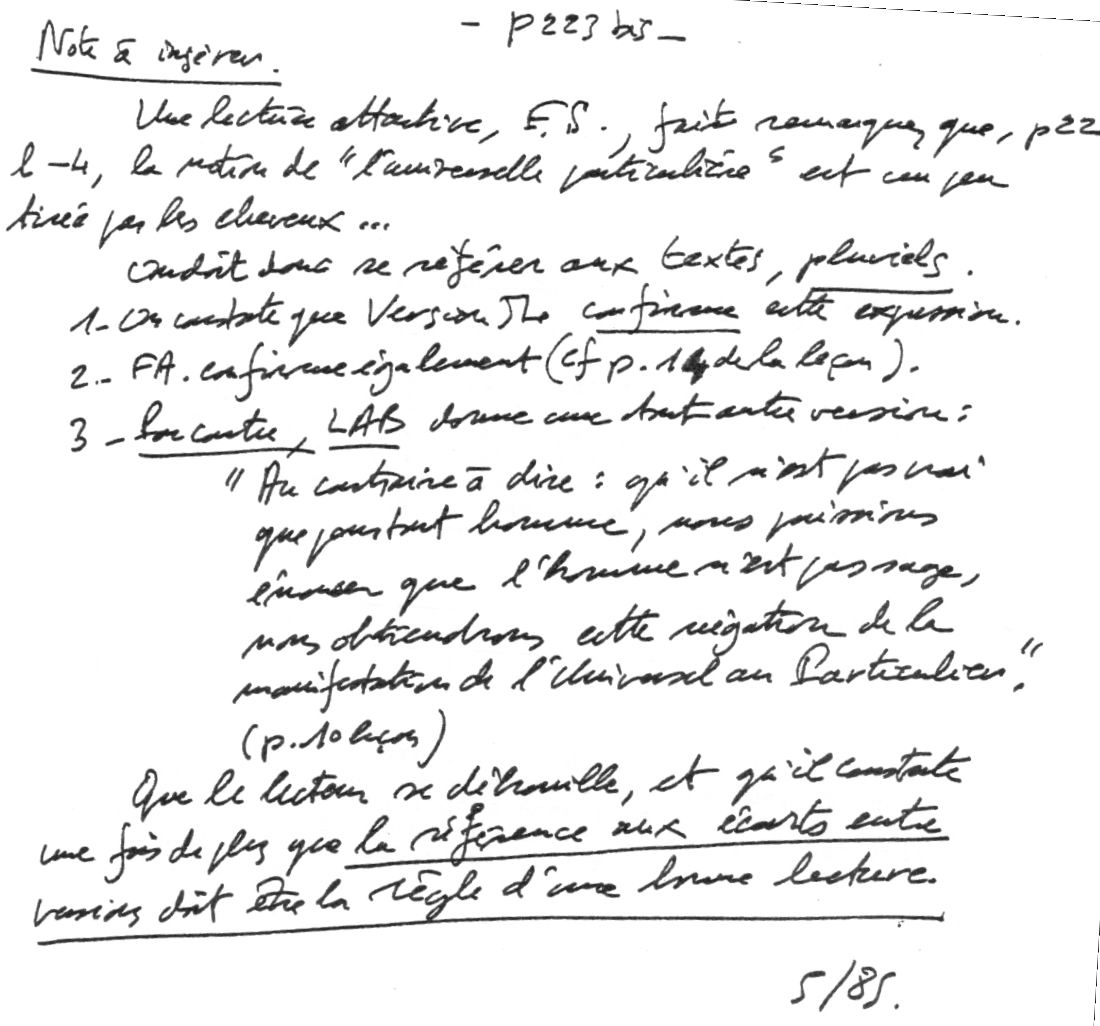 - p223 bis -
Note à insérer.
Une lectrice attentive, F.S., fait remarquer que, p22
l -4, la notion de "l'universelle particulière" est un peu
tirée par les cheveux ...
on doit donc se référer aux textes, pluriels.
1- On constate que Version the confirme cette expression.
2.- FA. confirme également (cf p.14 de la leçon).
3 - Par contre, LAB donne une tout autre version :
" Au contraire à dire : qu'il n'est pas vrai
que pour tout homme, nous puissions
énoncer que l'homme n'est pas sage,
nous obtiendrons cette négation de la
manifestation de l'Universel au Particulier."
(p.10 leçon)
Que le lecteur se débrouille, et qu'il constate
une fois de plus que la référence aux écarts entre
versions doit être la règle d'une bonne lecture.
5/85.